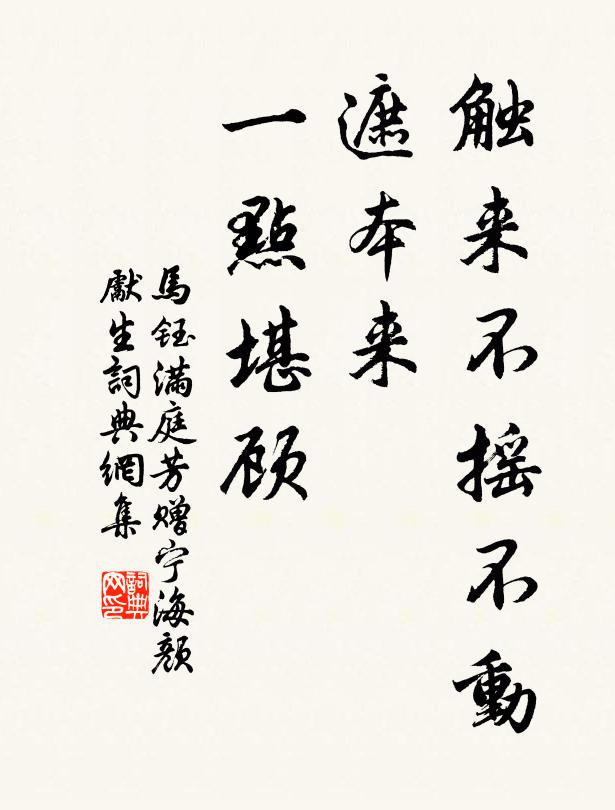 触来不摇不動
遮本来
一點堪顾
馬钰满庭芳赠宁海颜
獻生詞典網集
詞典网印